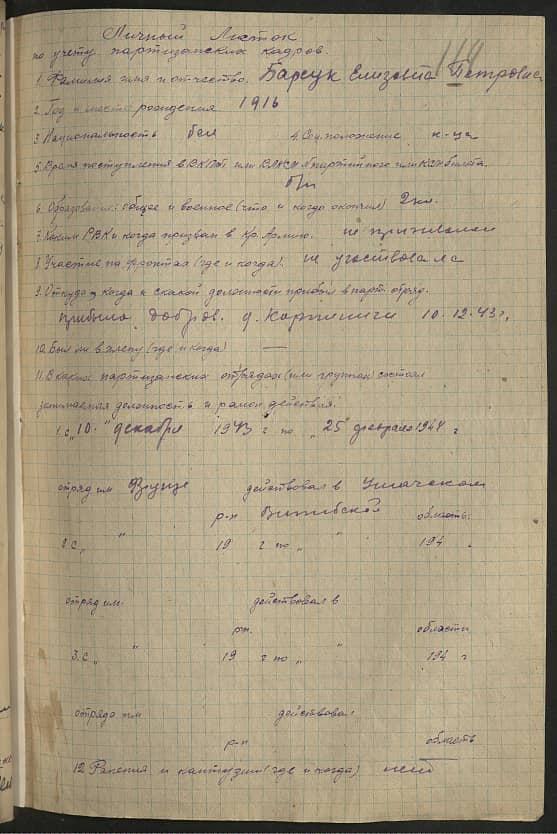 Личный Листок
по учету партизанских кадров.
114
1. Фамилия имя и отчество. Барсук Елизовета Петровна
2. Год и место рождения 1916
3 Национальность бел 4. Соц. положение к-ца
5. Время поступления в ВКП/б/ или ВЛКСМ № партийного или КСМ билета.
б/п
6. Образование: общее и военное (что и когда окончил) 2 кл.
7. Каким РВК и когда призван в Кр. Армию. не призвался
8 Участие на фронтах (где и когда). не участвовала
9. Откуда, когда и с какой должности прибыл в парт. отряд.
прибыла добров. д. 10.12.43 г.
10. Был ли в плену (где и когда) —
11. В каких партизанских отрядах (или группах) состоял
занимаемая должность и район действия.
1 с "10" декабря 1943 г по "25" февраля 1944 г
отряд им Фрунзе действовал в Ушачском
р-н Витебской область.
2 с " " 19 г по " " 194 .
отряд им. действовал в
р-н. области
3. с " " 19 г по " " 194 г
отряд им действовал
р-н область
12 Ранения и контузии (где и когда) нет